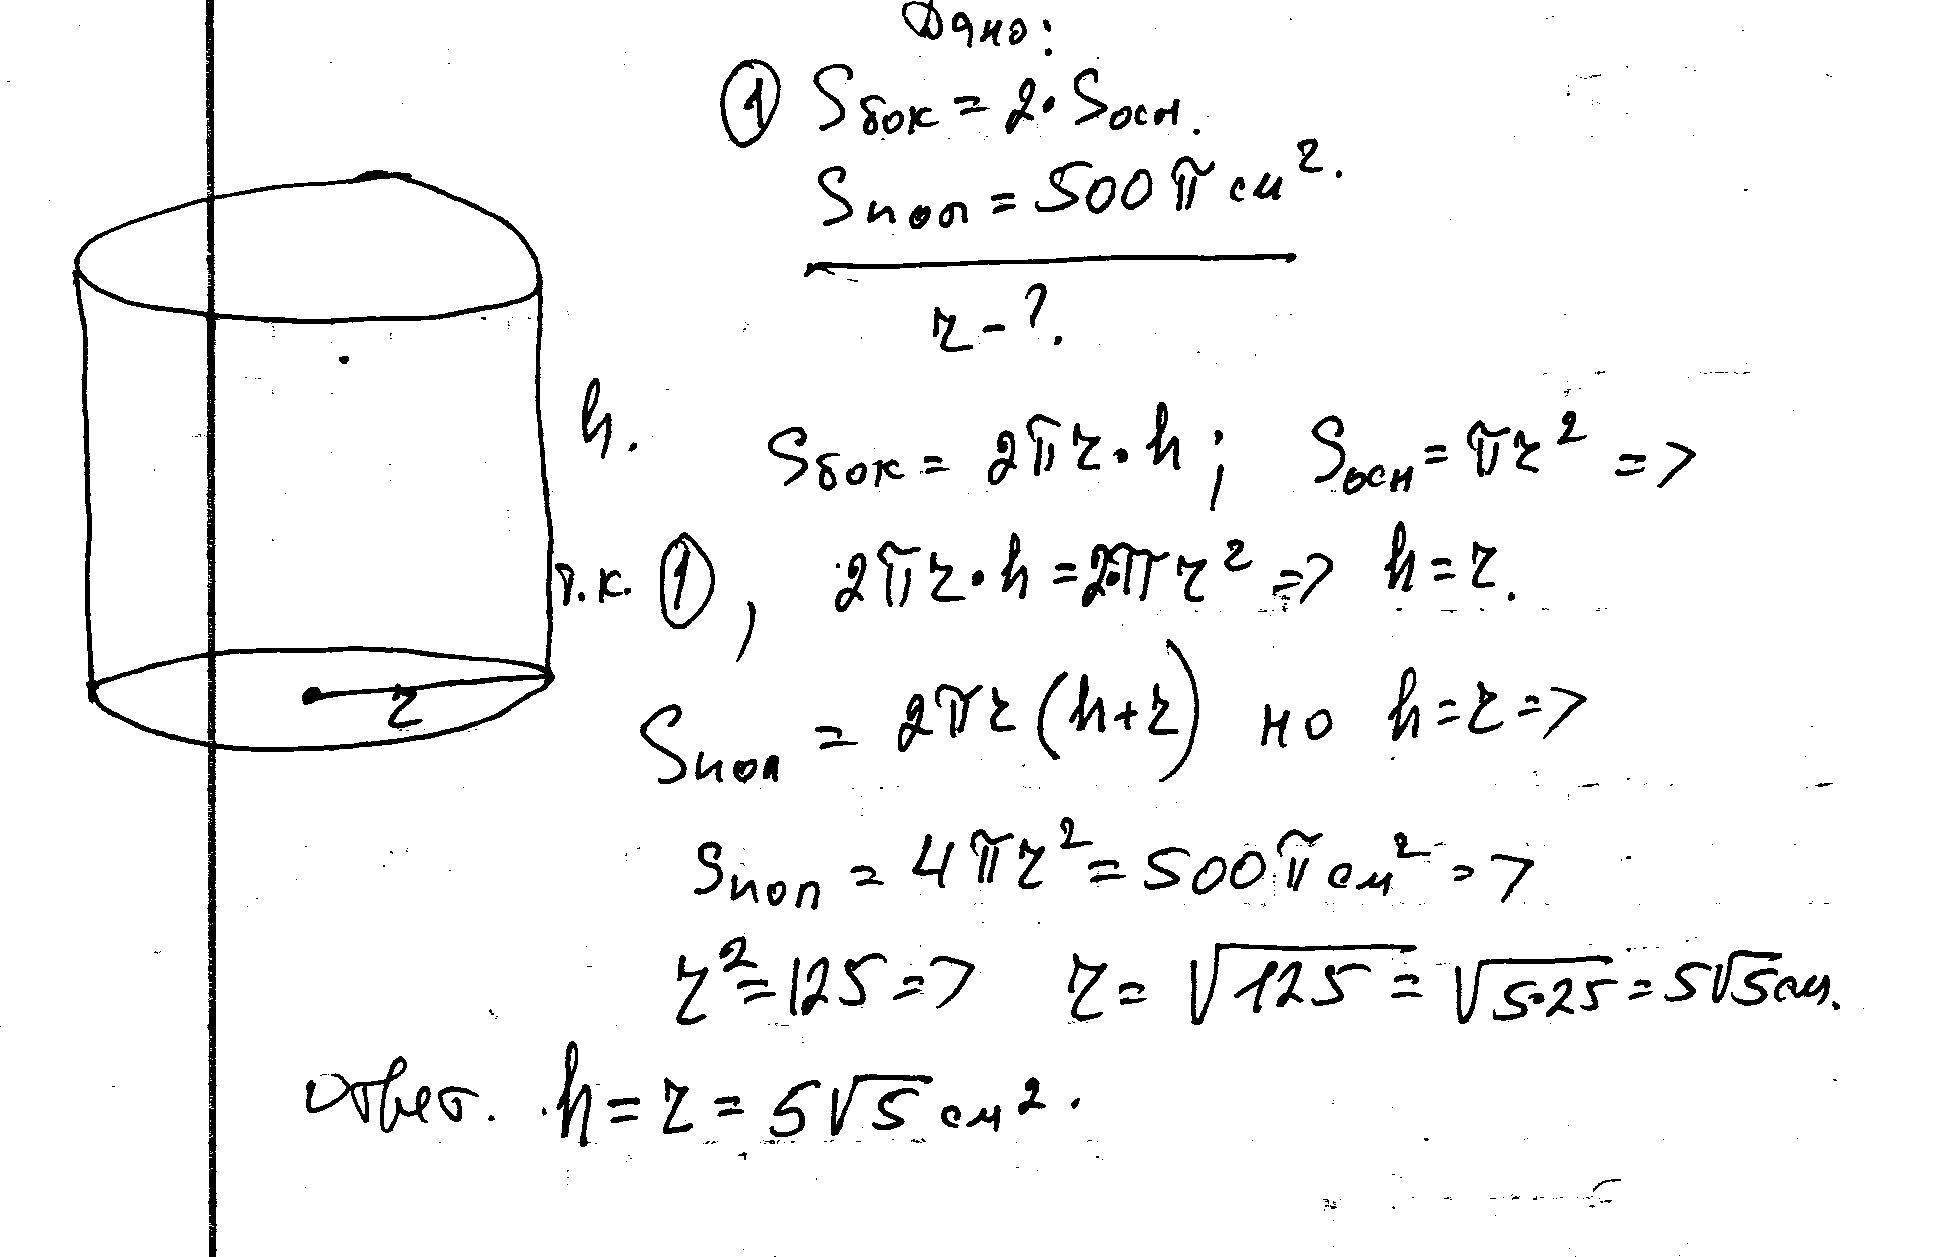 Дано:
① Sбок = 2·Sосн.
Sпоп = 500π см².
r - ?.
h.
Sбок = 2πr·h ; Sосн = πr² =>
т.к. ①, 2πr·h = 2·πr² => h = r.
Sпол = 2πr (h+r) но h = r =>
Sпоп = 4πr² = 500π см² =>
r² = 125 => r = √125 = √5·25 = 5√5 см.
r
Ответ. h = r = 5√5 см².